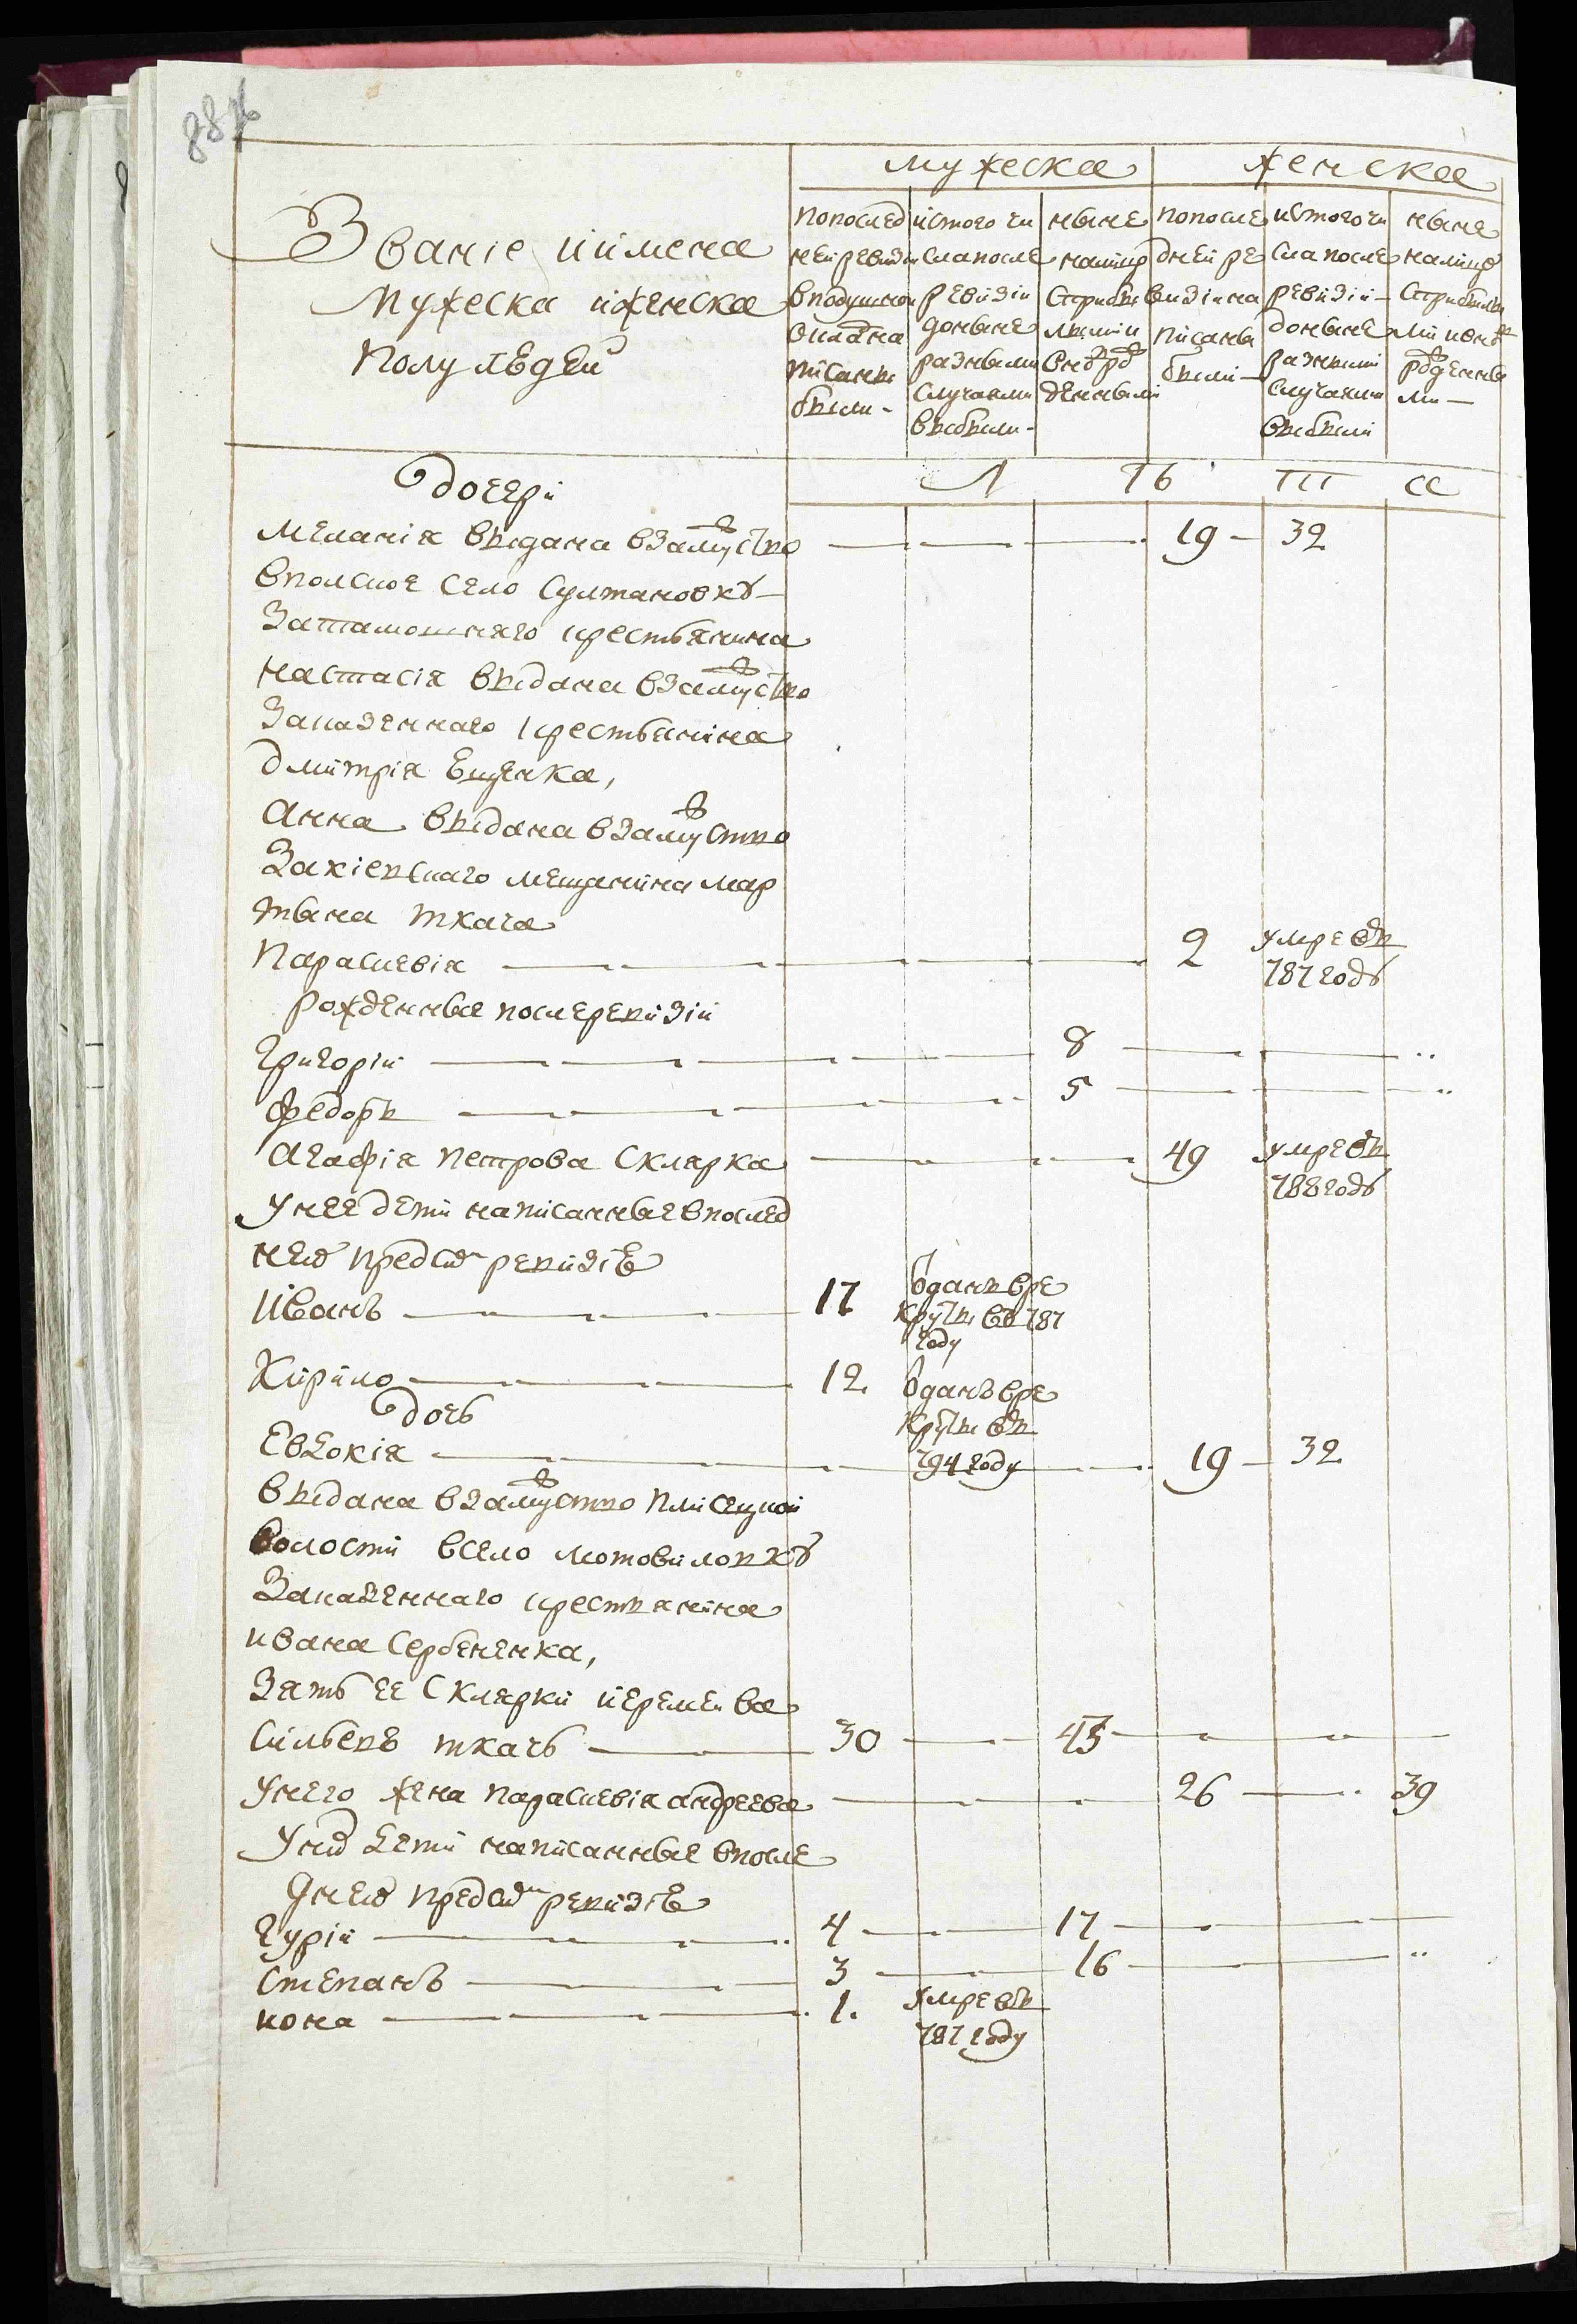 мужеска женска
Званіе иимена
Мужеска иженска
Полу людей
попослед
ней ревизи
вподушном
окладѣ на
писаны
были-
истого чи
сла после
ревизіи
доныне
разными
случаями
выбыли-
ныне
налицо
сприбы
лыми и
вно рож
денными
попосле
дней ре
визіи на
писаны
были-
истогочи
сла после
ревизіи-
доныне
разными
случаями
выбыли
ныне
налицо
сприбылы
ми ивно
рожденны
ми-
Л Ѣ Т А
дочери
Меланія выдана взамужство 19 - 32
впольское село Султановку-
Затамошняго крестьянина
Настасія выдана взамужство
Заказеннаго крестьянина
Дмитрія Ещенка,
Анна выдана взамужство
Закіевскаго мещанина мар
тына ткача
Параскевія 2 умре въ
787 годѣ
рожденные послеревизіи
Григорій 8
Федоръ 5
Агафія Петрова Склярка 49 умре въ
788 годѣ
Унее дети написанные впослед
ней пред сим ревизіѣ
Иванъ 17 Отданъ вре
круты въ 787
году
Кирило 12. Отданъ вре
круты въ
794 году
дочь
Евдокія 19 - 32
выдана взамужство Плисецкой
волости всело мотовиловку
Заказеннаго крестьянина
ивана Сербененка,
Зять ее Склярки иеремей ва
сильевъ ткачь 30 43
Унего жена параскевія андреева 26 39
Уних дети написанные впосле
дней пред сим ревизіѣ
Гурій 4 17
Степанъ 3 16
иона 1. умре въ
787 году